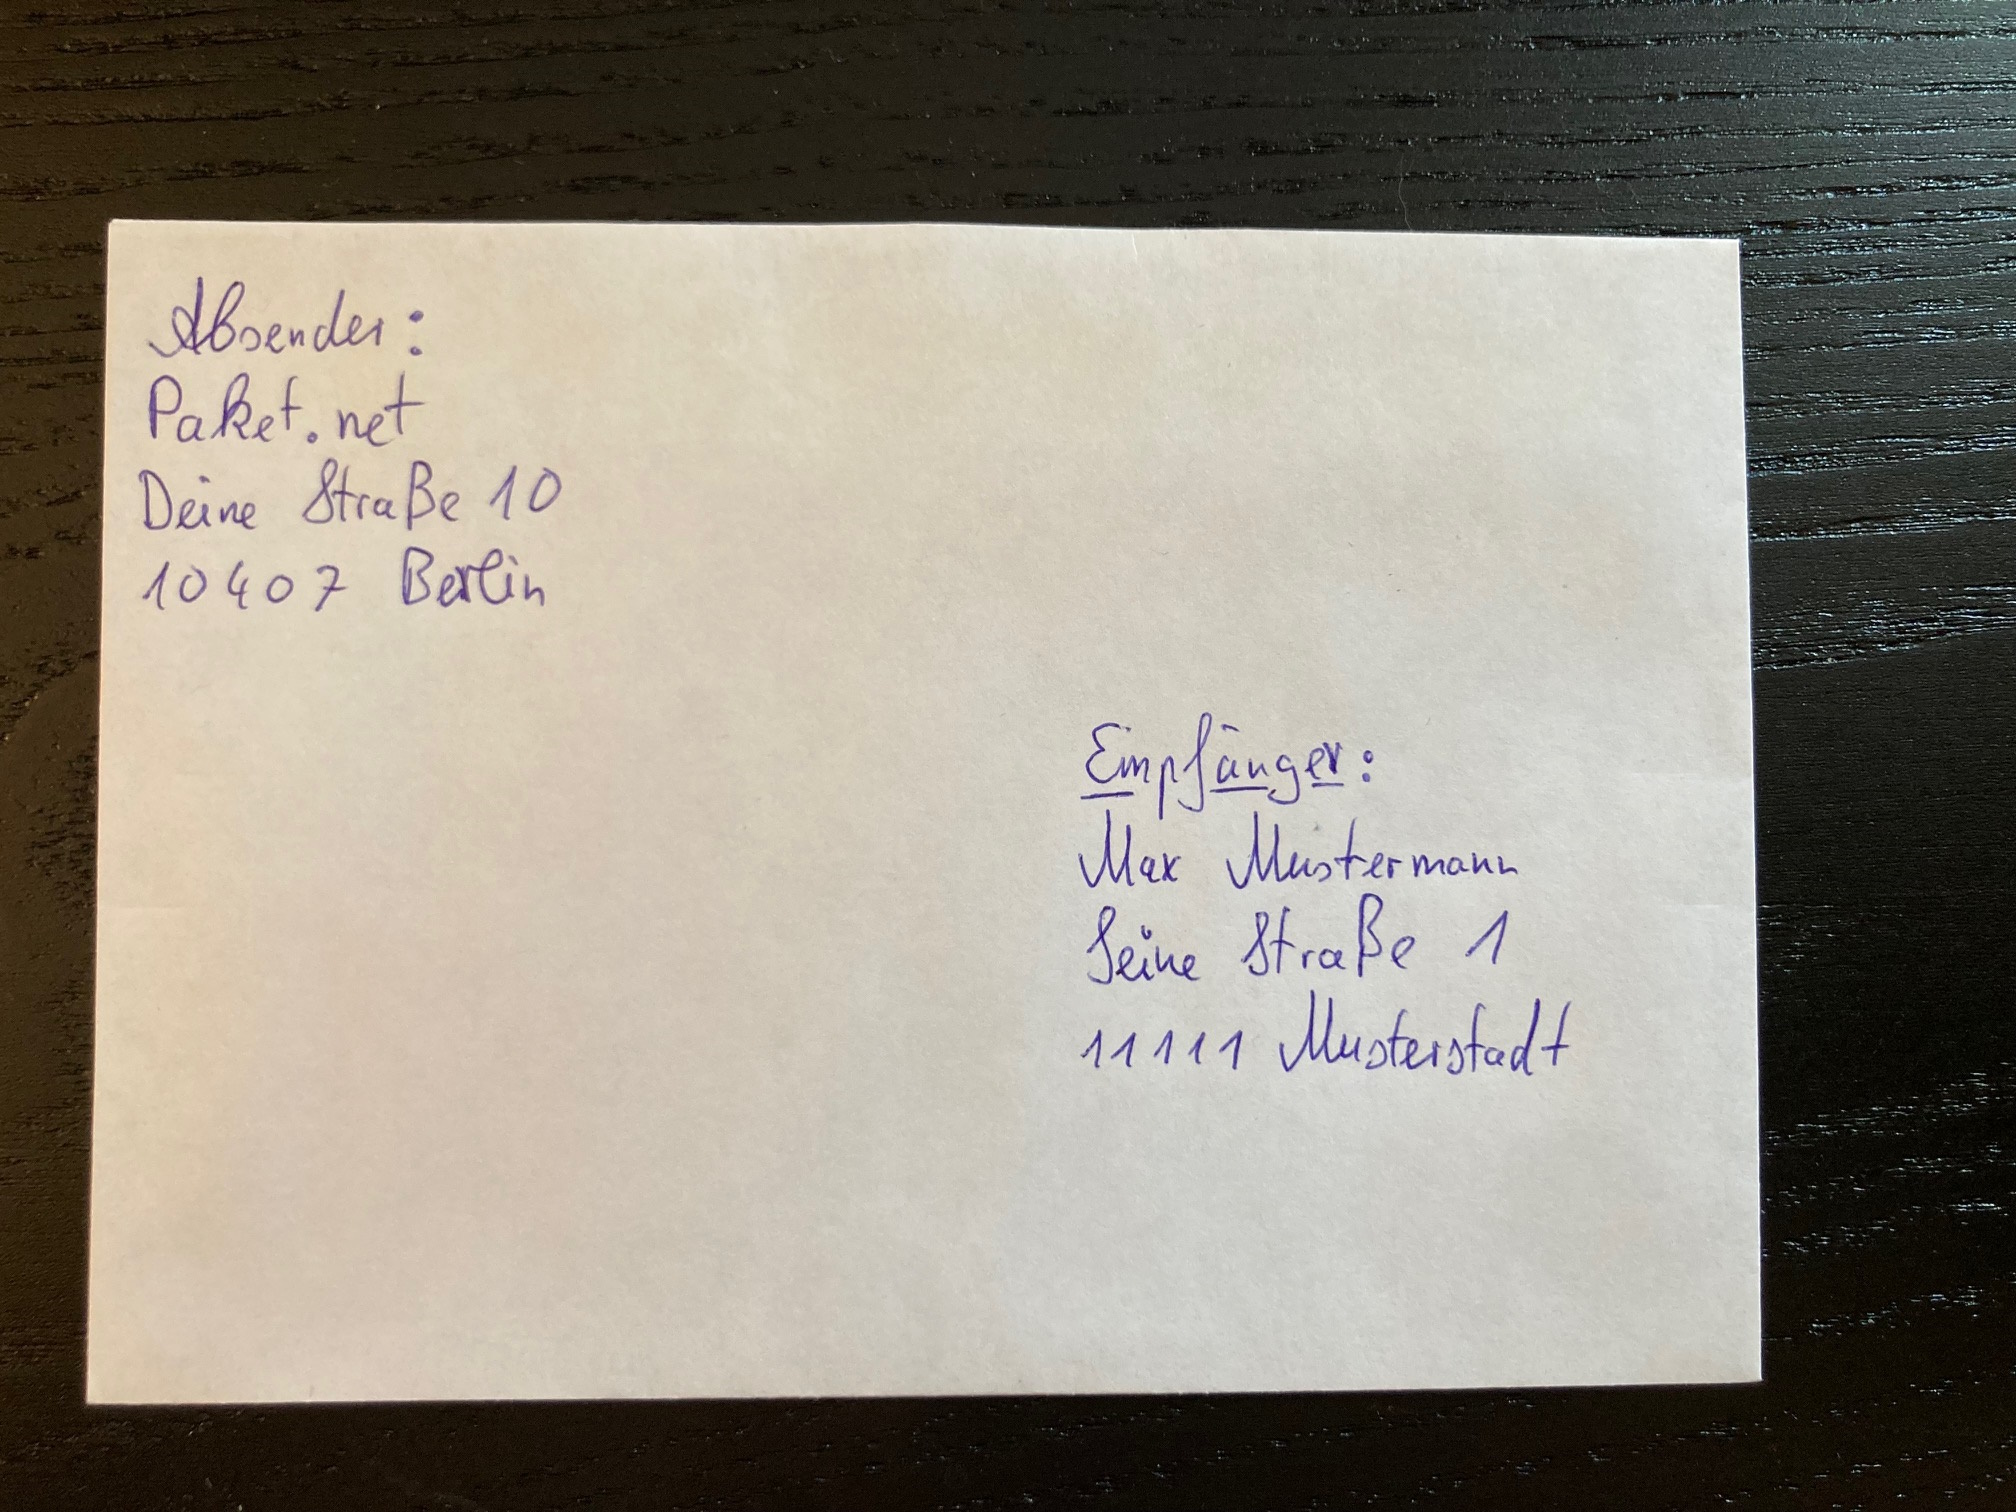 Absender:
Paket.net
Deine Straße 10
10407 Berlin
Empfänger:
Max Mustermann
Seine Straße 1
11111 Musterstadt